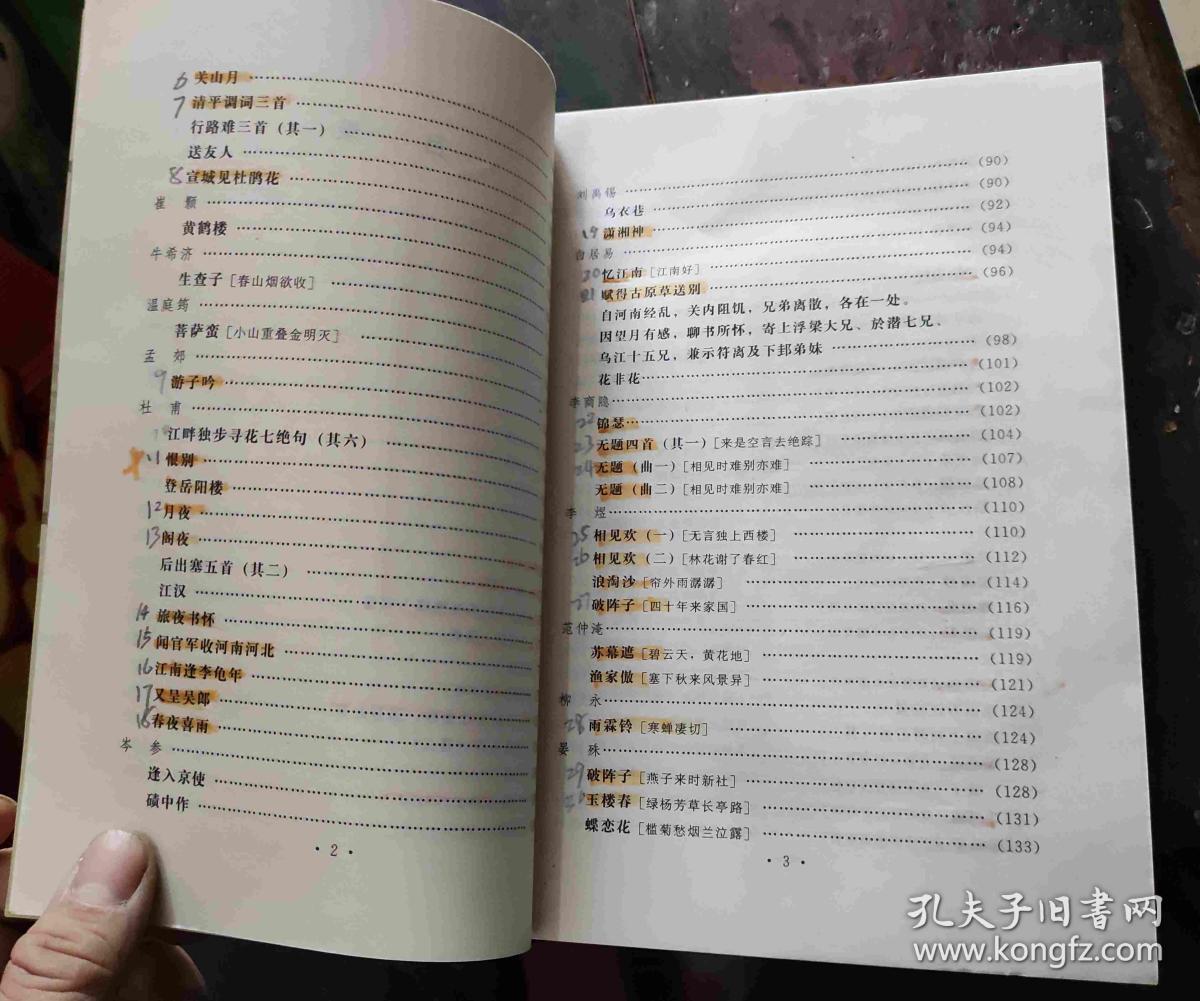 6 关山月
7 清平调词三首
行路难三首(其一)
送友人
8 宣城见杜鹃花
崔 颢
黄鹤楼
牛希济
生查子[春山烟欲收]
温庭筠
菩萨蛮[小山重叠金明灭]
孟 郊
9 游子吟
杜 甫
江畔独步寻花七绝句(其六)
11 恨别
登岳阳楼
12 月夜
13 阁夜
后出塞五首(其二)
江汉
14 旅夜书怀
15 闻官军收河南河北
16 江南逢李龟年
17 又呈吴郎
18 春夜喜雨
岑 参
逢入京使
碛中作
·2·
刘禹锡 (90)
乌衣巷 (90)
19 潇湘神 (92)
白居易 (94)
20 忆江南[江南好] (94)
21 赋得古原草送别 (96)
自河南经乱，关内阻饥，兄弟离散，各在一处。
因望月有感，聊书所怀，寄上浮梁大兄、於潜七兄、
乌江十五兄，兼示符离及下邽弟妹 (98)
花非花 (101)
李商隐 (102)
22 锦瑟 (102)
23 无题四首(其一)[来是空言去绝踪] (104)
24 无题(曲一)[相见时难别亦难] (107)
无题(曲二)[相见时难别亦难] (108)
李 煜 (110)
25 相见欢(一)[无言独上西楼] (110)
26 相见欢(二)[林花谢了春红] (112)
浪淘沙[帘外雨潺潺] (114)
27 破阵子[四十年来家国] (116)
范仲淹 (119)
苏幕遮[碧云天，黄花地] (119)
渔家傲[塞下秋来风景异] (121)
柳 永 (124)
28 雨霖铃[寒蝉凄切] (124)
晏 殊 (128)
29 破阵子[燕子来时新社] (128)
玉楼春[绿杨芳草长亭路] (131)
蝶恋花[槛菊愁烟兰泣露] (133)
·3·
孔夫子旧書网
www.kongfz.com